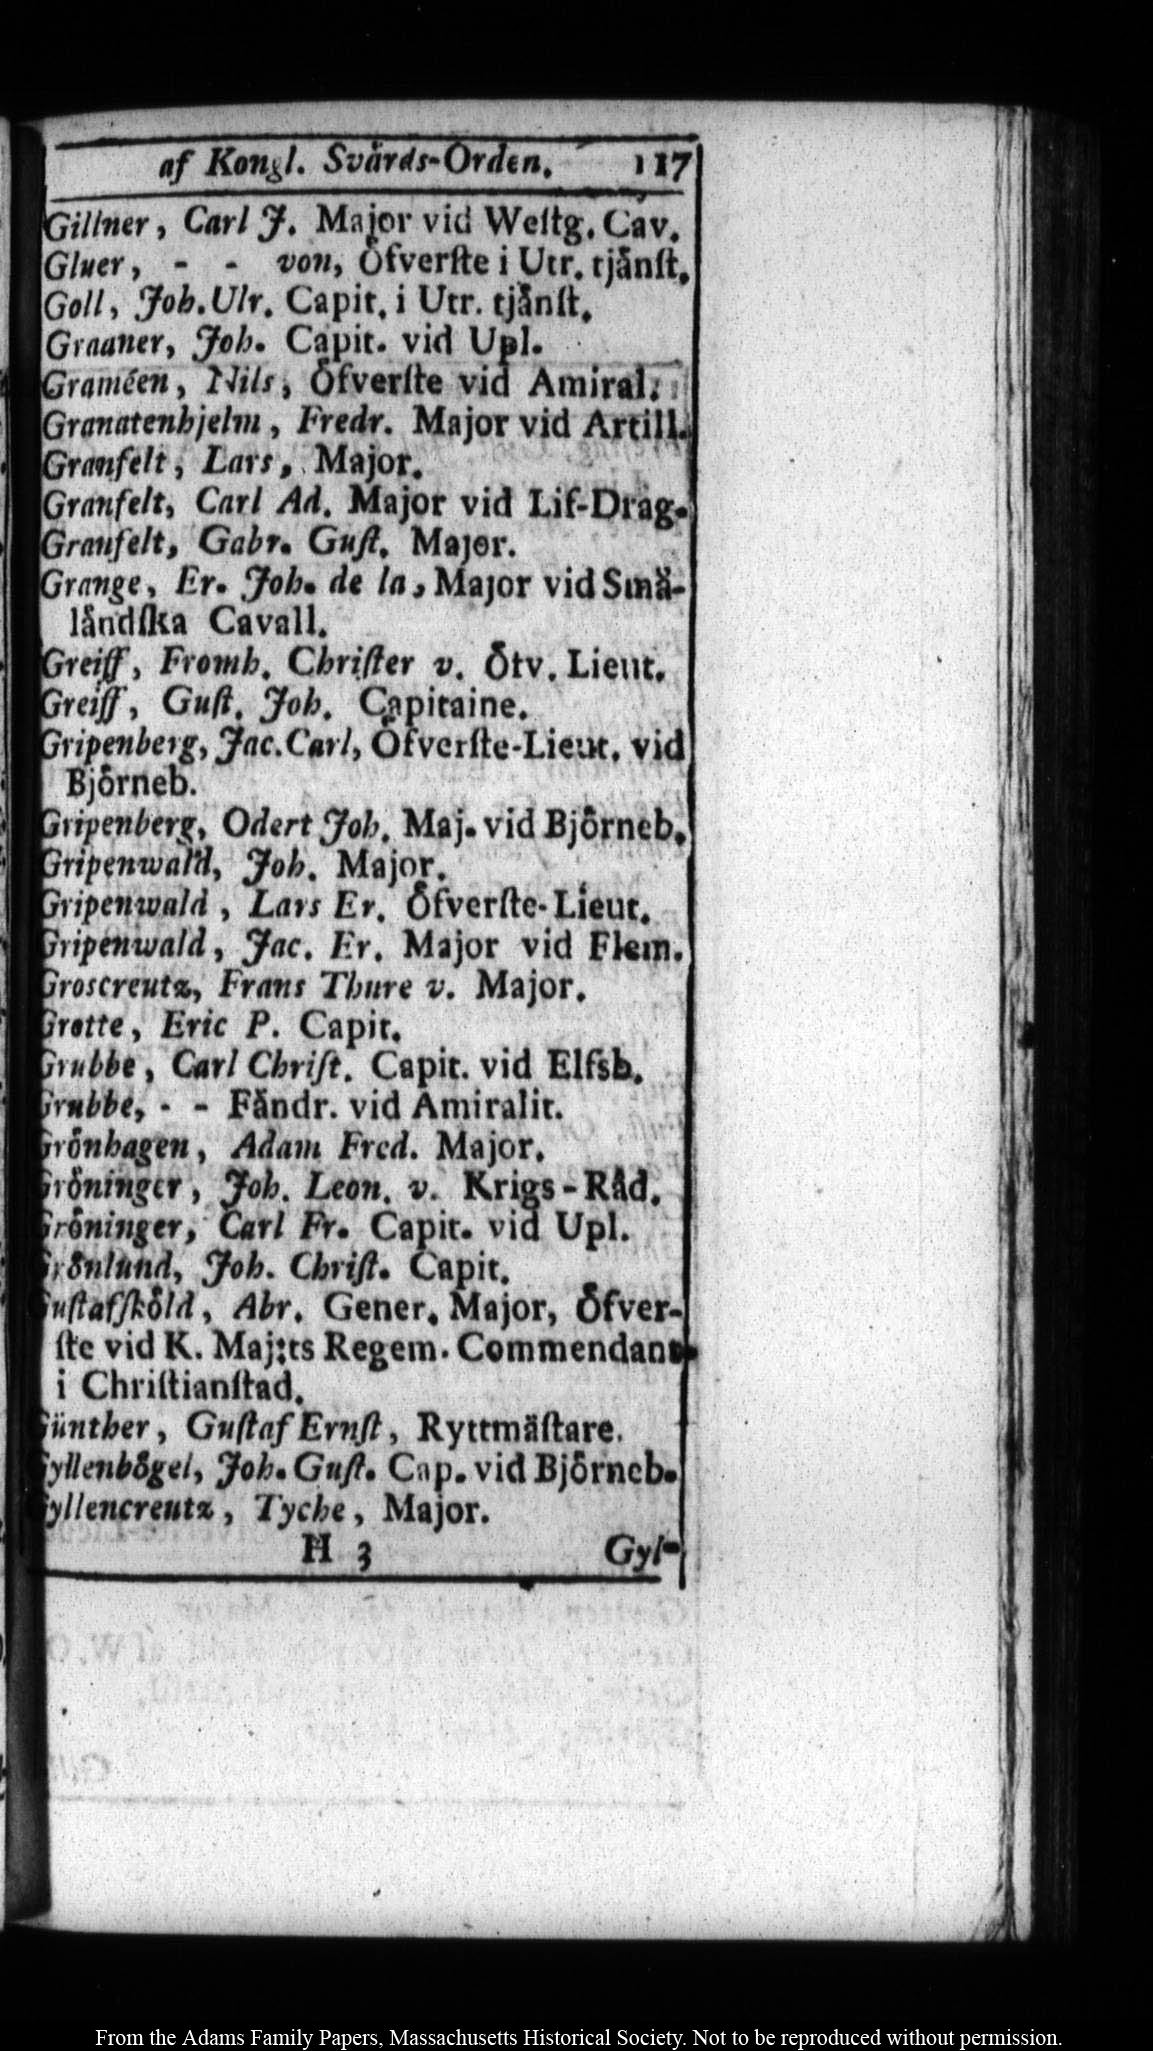 af Kongl. Svårds-Orden. 117
Gillner, Carl J. Major vid Weſtg. Cav.
Gluer, - - von, Öfverſte i Utr. tjånſt.
Goll, Joh. Ulr. Capit. i Utr. tjånſt.
Graaner, Joh. Capit. vid Upl.
Graméen, Nils, Öfverſte vid Amiral.
Granatenhjelm, Fredr. Major vid Artill.
Granfelt, Lars, Major.
Granfelt, Carl Ad. Major vid Lif-Drag.
Granfelt, Gabr. Guſt. Major.
Grange, Er. Joh. de la, Major vid Små-
låndſka Cavall.
Greiff, Fromh. Chriſter v. Öfv. Lieut.
Greiff, Guſt. Joh. Capitaine.
Gripenberg, Jac. Carl, Öfverſte-Lieut. vid
Björneb.
Gripenberg, Odert Joh. Maj. vid Björneb.
Gripenwald, Joh. Major.
Gripenwald, Lars Er. Öfverſte-Lieut.
Gripenwald, Jac. Er. Major vid Flem.
Groscreutz, Frans Thure v. Major.
Grotte, Eric P. Capit.
Grubbe, Carl Chriſt. Capit. vid Elfsb.
Grubbe, - - Fändr. vid Amiralit.
Grönhagen, Adam Fred. Major.
Gröninger, Joh. Leon. v. Krigs-Råd.
Gröninger, Carl Fr. Capit. vid Upl.
Grönlund, Joh. Chriſt. Capit.
Guſtafſköld, Abr. Gener. Major, Öfver-
ſte vid K. Maj:ts Regem. Commendant
i Chriſtianſtad.
Günther, Guſtaf Ernſt, Ryttmäſtare.
Gyllenbögel, Joh. Guſt. Cap. vid Björneb.
Gyllencreutz, Tyche, Major.
H 3 Gyl-
From the Adams Family Papers, Massachusetts Historical Society. Not to be reproduced without permission.